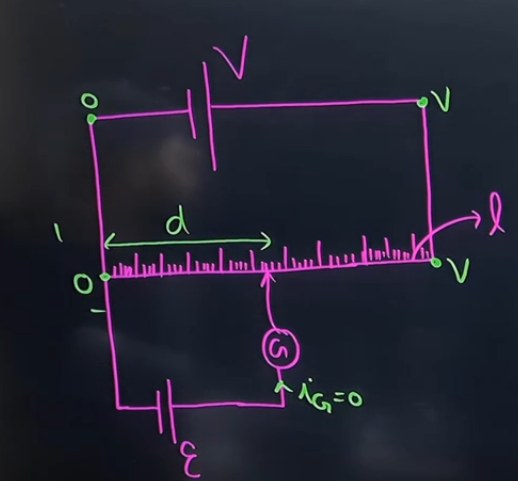 V
O
V
d
l
O
V
G
i_G=0
ε